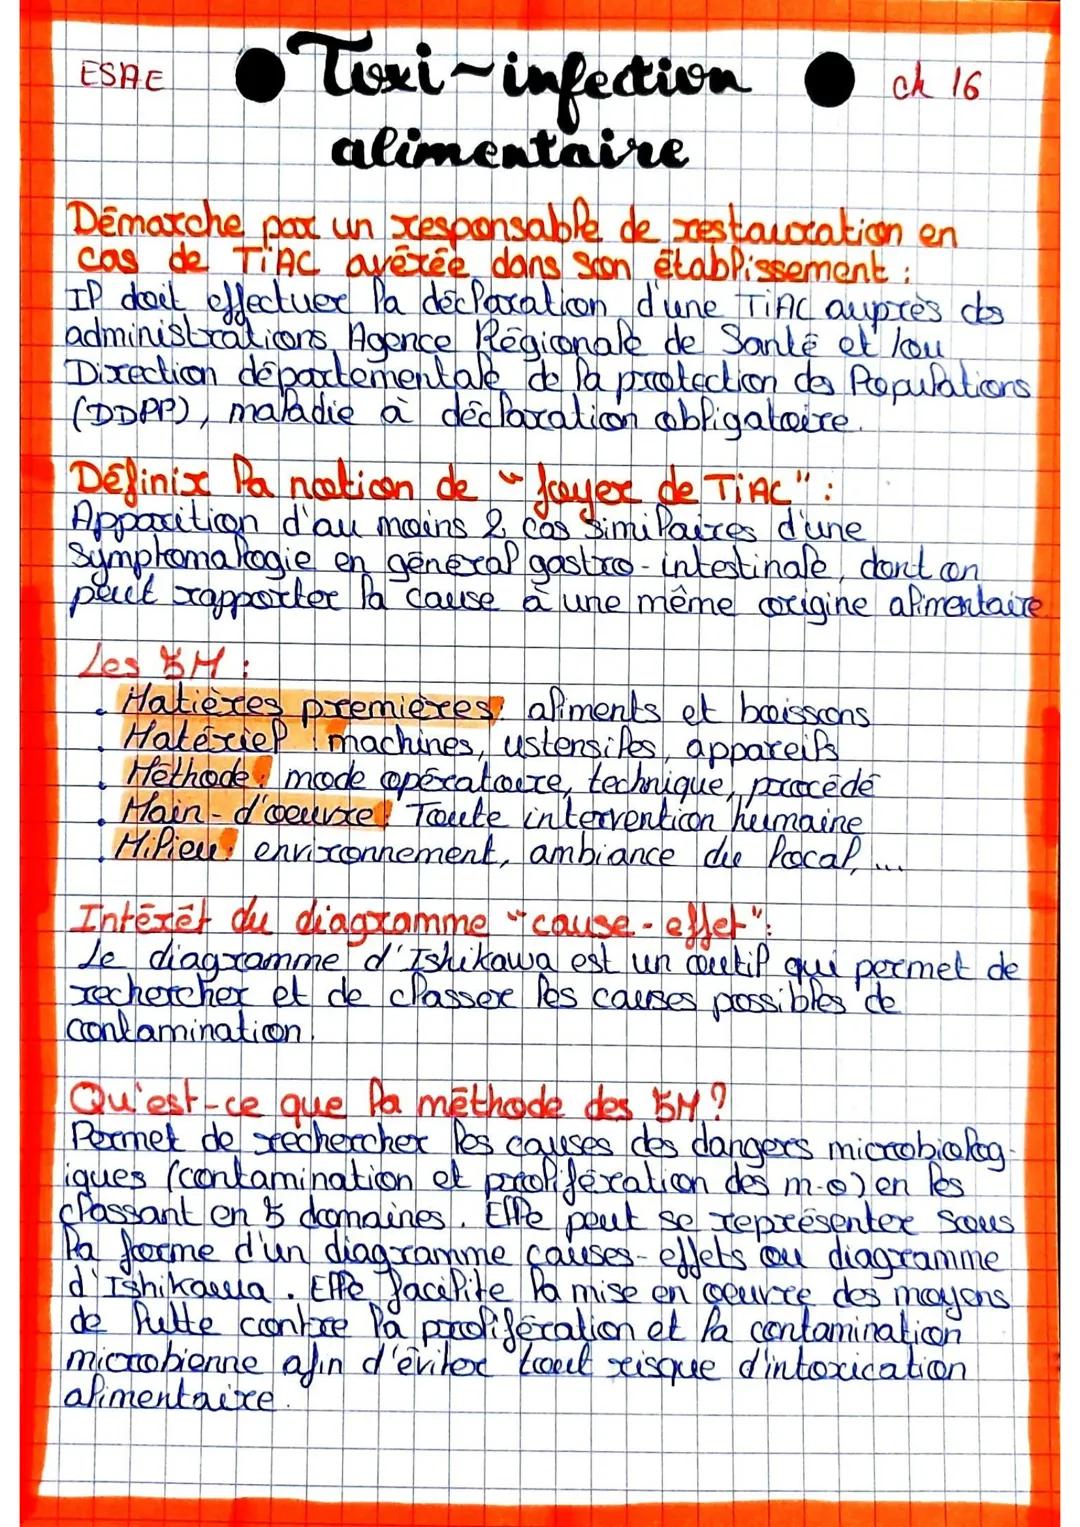 ESAE
Toxi-infection
ch 16
alimentaire
Démarche par un responsable de restauration en
cas de TiAC avérée dans son établissement :
Il doit effectuer la déclaration d'une TiAC auprès des
administrations Agence Régionale de Santé et/ou
Direction départementale de la protection des Populations
(DDPP), maladie à déclaration obligatoire.
Définir la notion de "foyer de TiAC" :
Apparition d'au moins 2 cas similaires d'une
symptomalogie en général gastro-intestinale, dont on
peut rapporter la cause à une même origine alimentaire
Les 5M :
. Matières premières: aliments et boissons
. Matériel : machines, ustensiles, appareils
. Méthode: mode opératoire, technique, procédé
. Main-d'oeuvre: Toute intervention humaine
. Milieu: environnement, ambiance du local, ...
Intérêt du diagramme "cause-effet":
Le diagramme d'Ishikawa est un outil qui permet de
rechercher et de classer les causes possibles de
contamination.
Qu'est-ce que la méthode des 5M ?
Permet de rechercher les causes des dangers microbiolog-
iques (contamination et prolifération des m.o) en les
classant en 5 domaines. Elle peut se représenter sous
la forme d'un diagramme causes-effets ou diagramme
d'Ishikawa. Elle facilite la mise en oeuvre des moyens
de lutte contre la prolifération et la contamination
microbienne afin d'éviter tout risque d'intoxication
alimentaire.